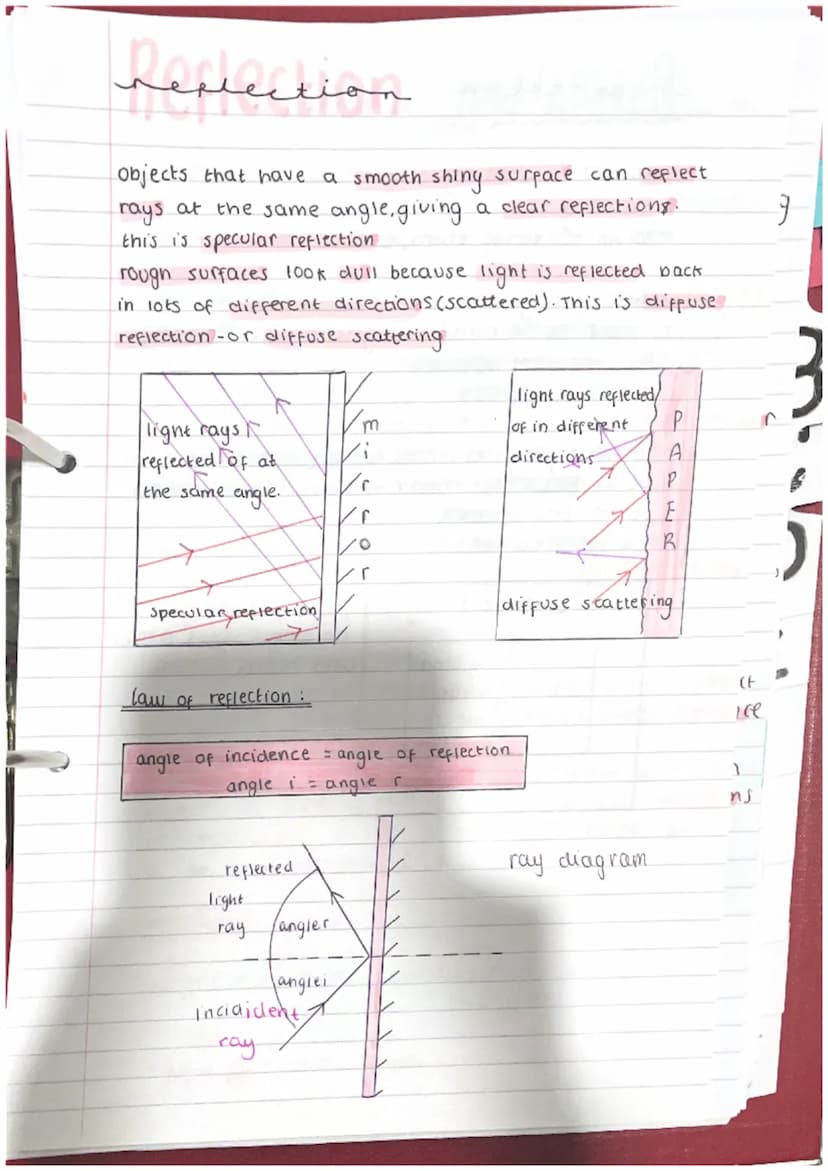 Reflection
reflection
objects that have a smooth shiny surface can reflect
rays at the same angle, giving a clear reflections.
this is specular reflection
rough surfaces look dull because light is reflected back
in lots of different directions (scattered). This is diffuse
reflection - or diffuse scattering
light rays
reflected of at
the same angle.
specular reflection
mirror
light rays reflected
of in different
directions
PAPER
diffuse scattering
law of reflection:
angle of incidence = angle of reflection
angle i = angle r
ray diagram
reflected
light
ray
angle r
angle i
incidident
ray
g
r
ct
ns